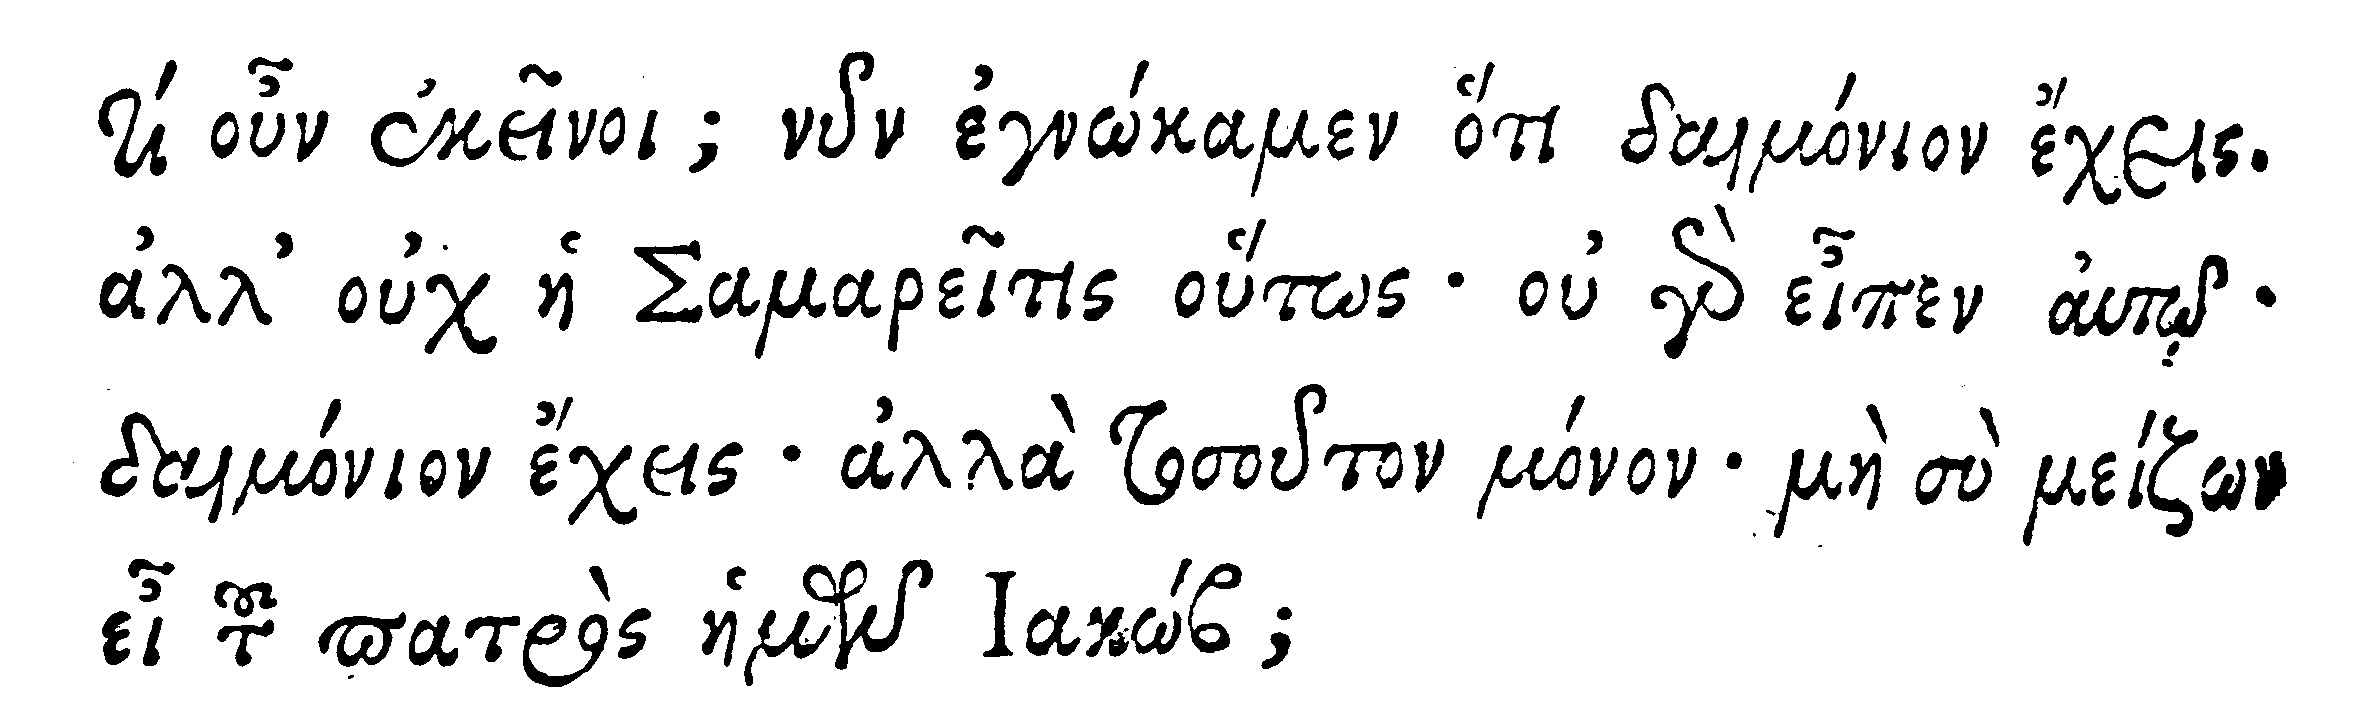 τί οὖν ἐκεῖνοι; νῦν ἐγνώκαμεν ὅτι δαιμόνιον ἔχεις.
ἀλλ᾽ οὐχ ἡ Σαμαρεῖτις οὕτως· οὐ γὰρ εἶπεν αὐτῷ·
δαιμόνιον ἔχεις· ἀλλὰ τοσοῦτον μόνον· μὴ σὺ μείζων
εἶ τοῦ πατρὸς ἡμῶν Ιακώβ;